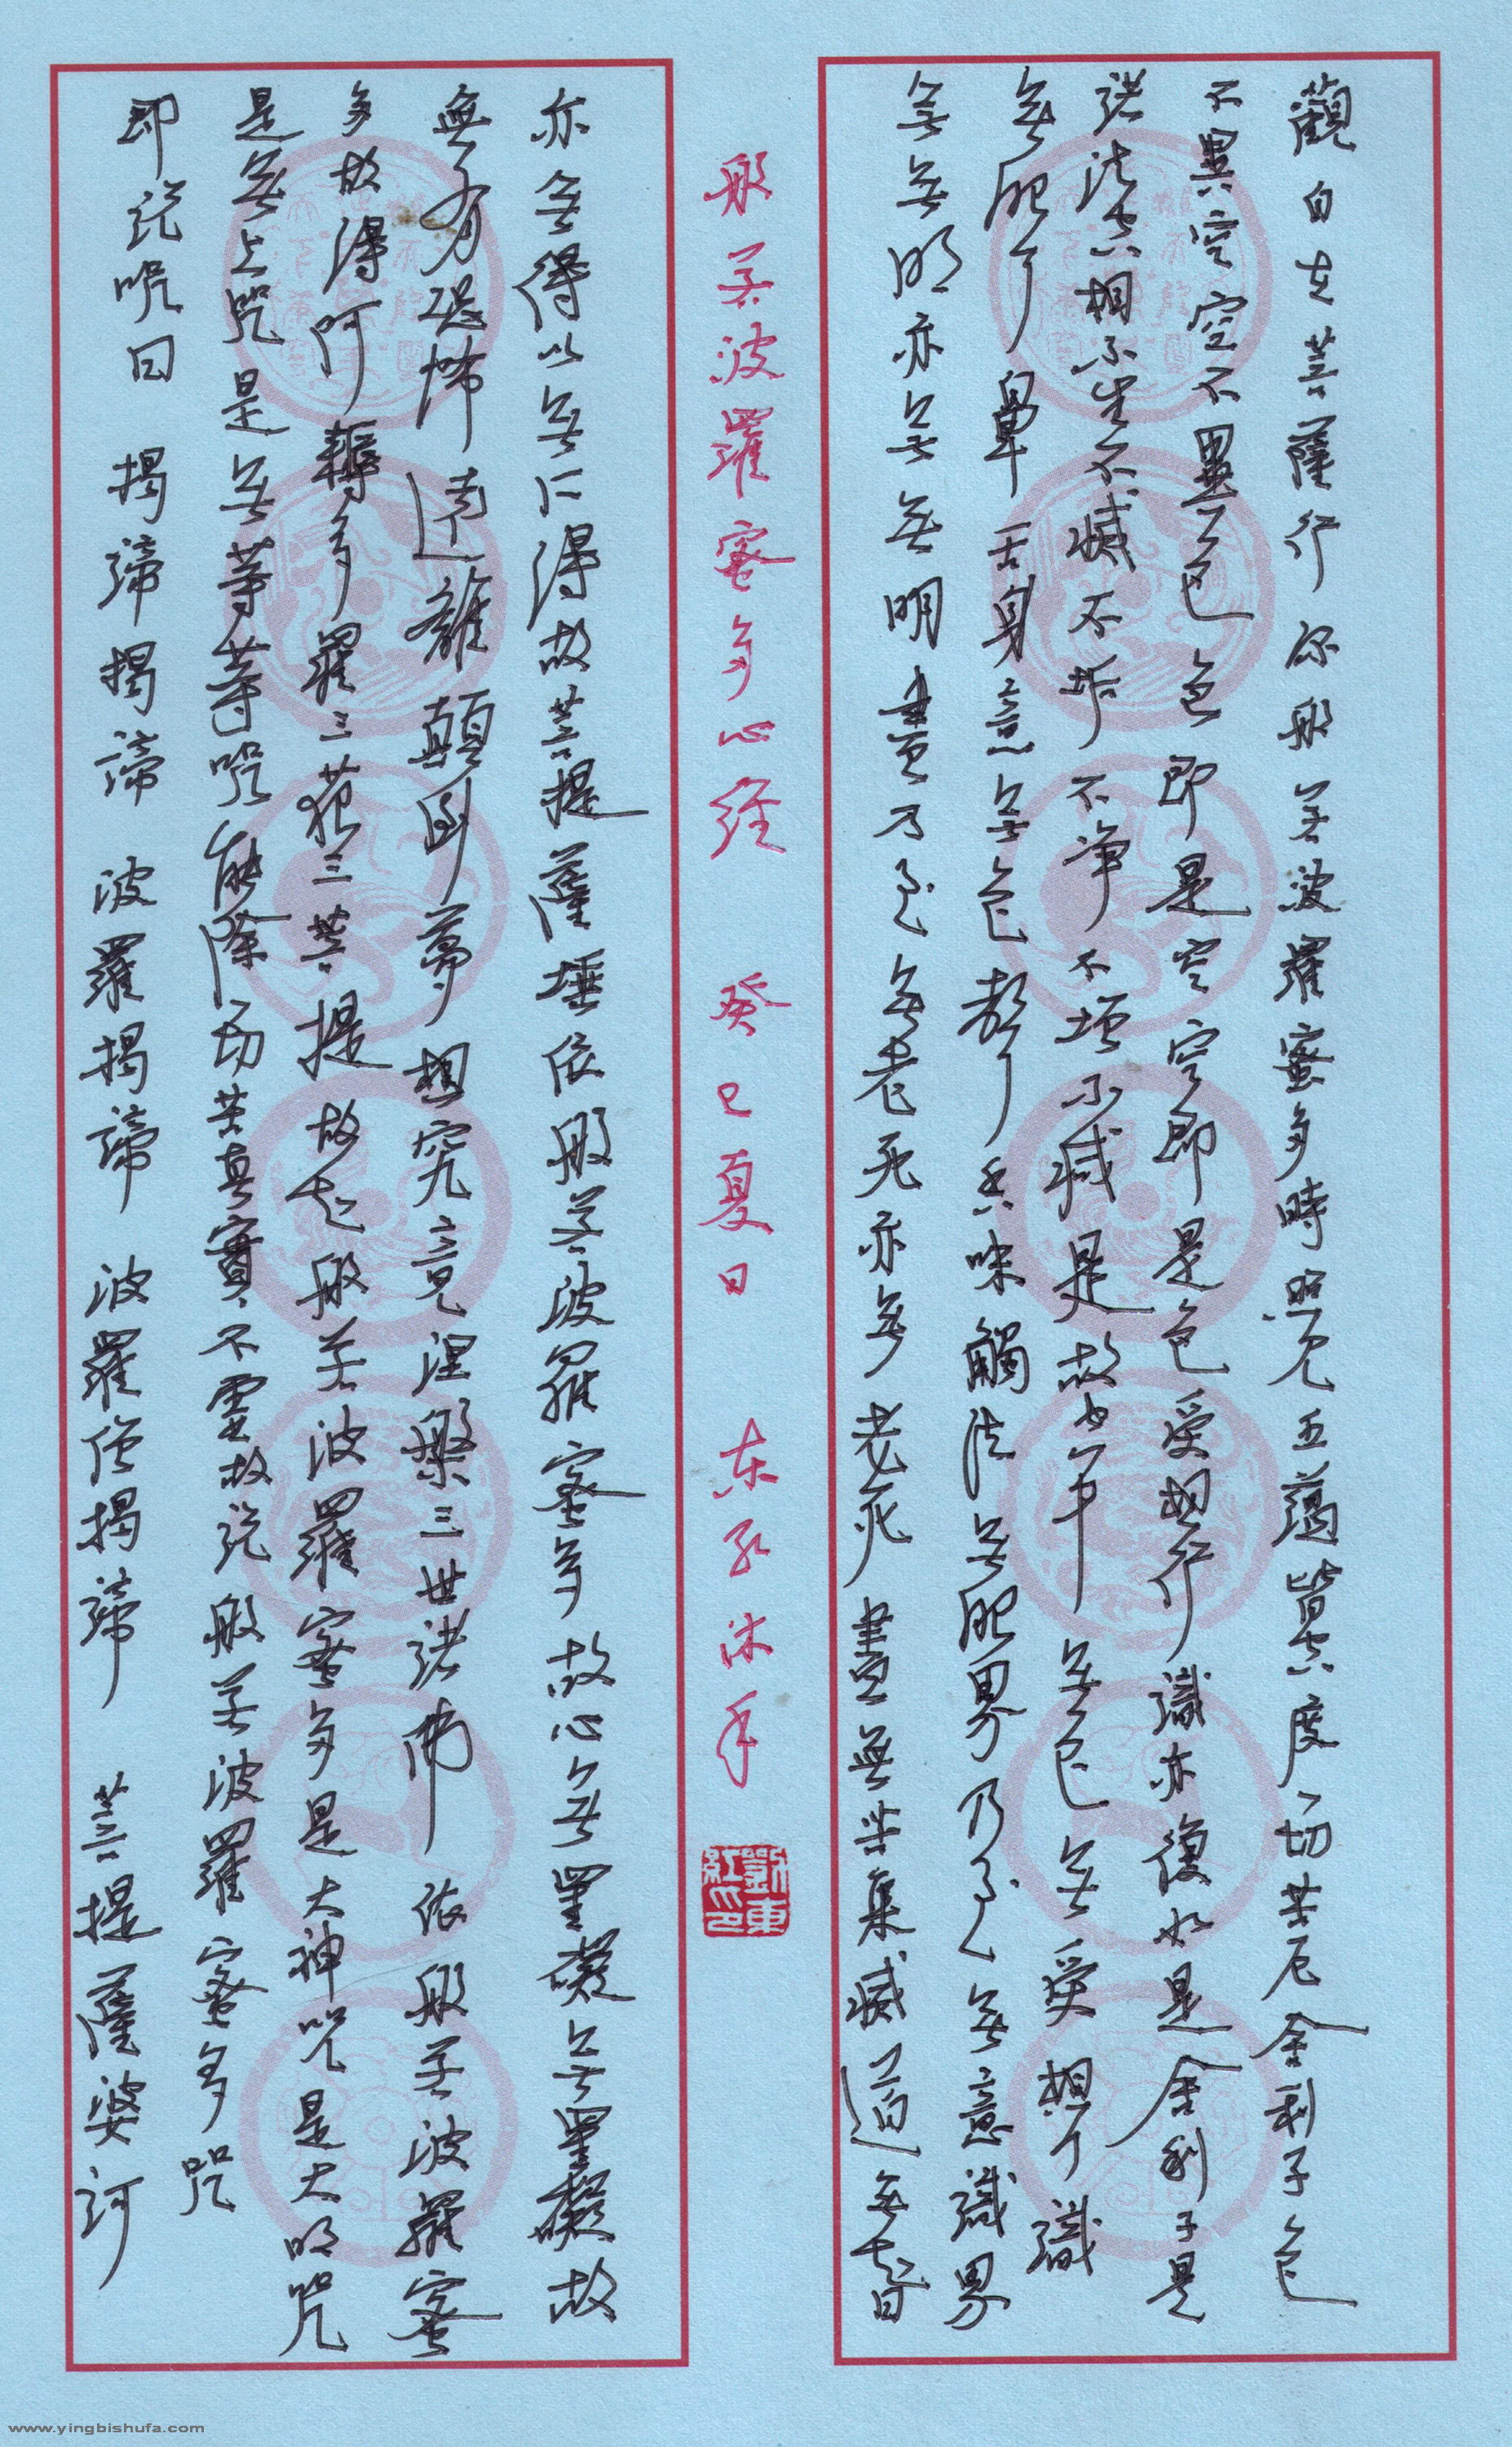 觀自在菩薩行深般若波羅蜜多時照見五蘊皆空度一切苦厄舍利子色
不異空空不異色色即是空空即是色受想行識亦復如是舍利子是
諸法空相不生不滅不垢不净不增不減是故空中無色無受想行識
無眼耳鼻舌身意無色聲香味觸法無眼界乃至無意識界
無無明亦無無明盡乃至無老死亦無老死盡無苦集滅道無智
般若波羅蜜多心经 癸巳夏日 东红沐手
劉東紅印
亦無得以無所得故菩提薩埵依般若波羅蜜多故心無罣礙無罣礙故
無有恐怖遠離顛倒夢想究竟涅槃三世諸佛依般若波羅蜜
多故得阿耨多羅三藐三菩提故知般若波羅蜜多是大神咒是大明咒
是無上咒是無等等咒能除一切苦真實不虛故说般若波羅蜜多咒
即说咒曰 揭諦揭諦 波羅揭諦 波羅僧揭諦 菩提薩婆訶
www.yingbishufa.com